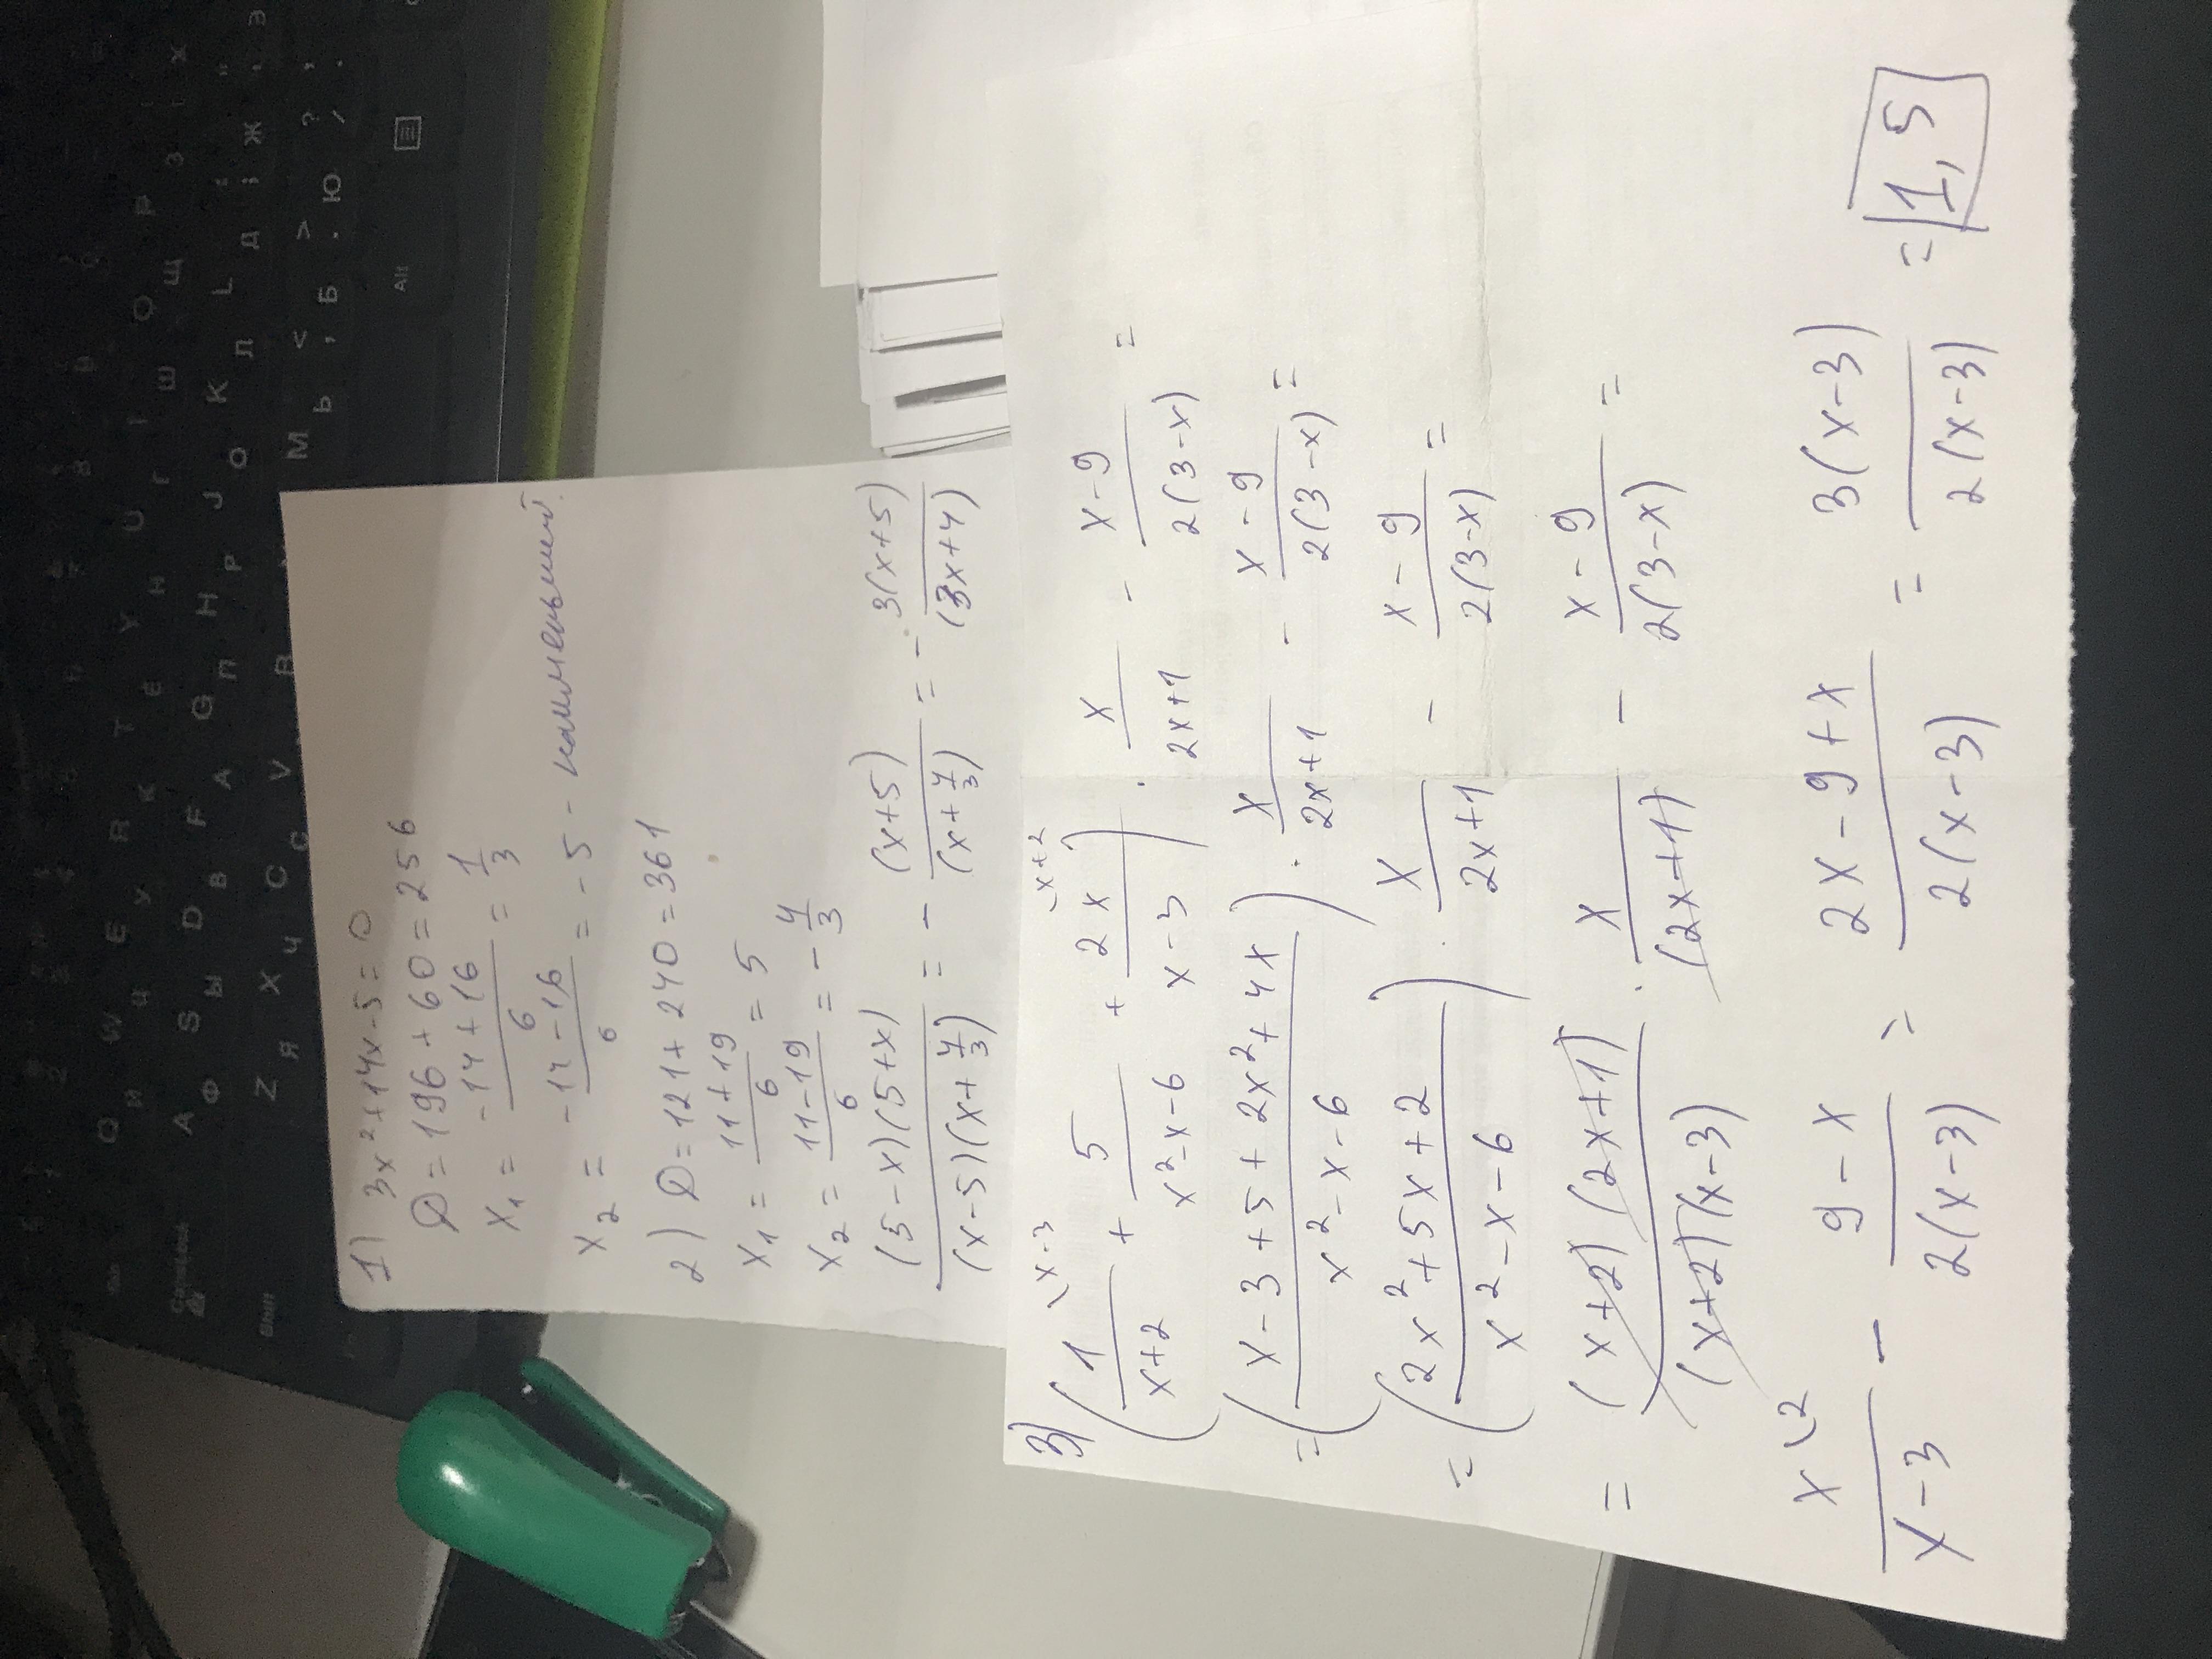 1) 3x²+14x-5=0
D=196+60=256
x₁ = (-14+16)/6 = 1/3
x₂ = (-14-16)/6 = -5 - наименьший.
2) D=121+240=361
x₁ = (11+19)/6 = 5
x₂ = (11-19)/6 = -4/3
((5-x)(5+x))/((x-5)(x+4/3)) = - (x+5)/(x+4/3) = - 3(x+5)/(3x+4)
3) (1\x-3/(x+2) + 5/(x²-x-6) + 2x\x+2/(x-3)) · x/(2x+1) - (x-9)/(2(3-x)) =
= ((x-3+5+2x²+4x)/(x²-x-6)) · x/(2x+1) - (x-9)/(2(3-x)) =
= ((2x²+5x+2)/(x²-x-6)) · x/(2x+1) - (x-9)/(2(3-x)) =
= ((x+2)(2x+1))/((x+2)(x-3)) · x/(2x+1) - (x-9)/(2(3-x)) =
x\2/(x-3) - (9-x)/(2(x-3)) = (2x-9+x)/(2(x-3)) = 3(x-3)/(2(x-3)) = 1,5